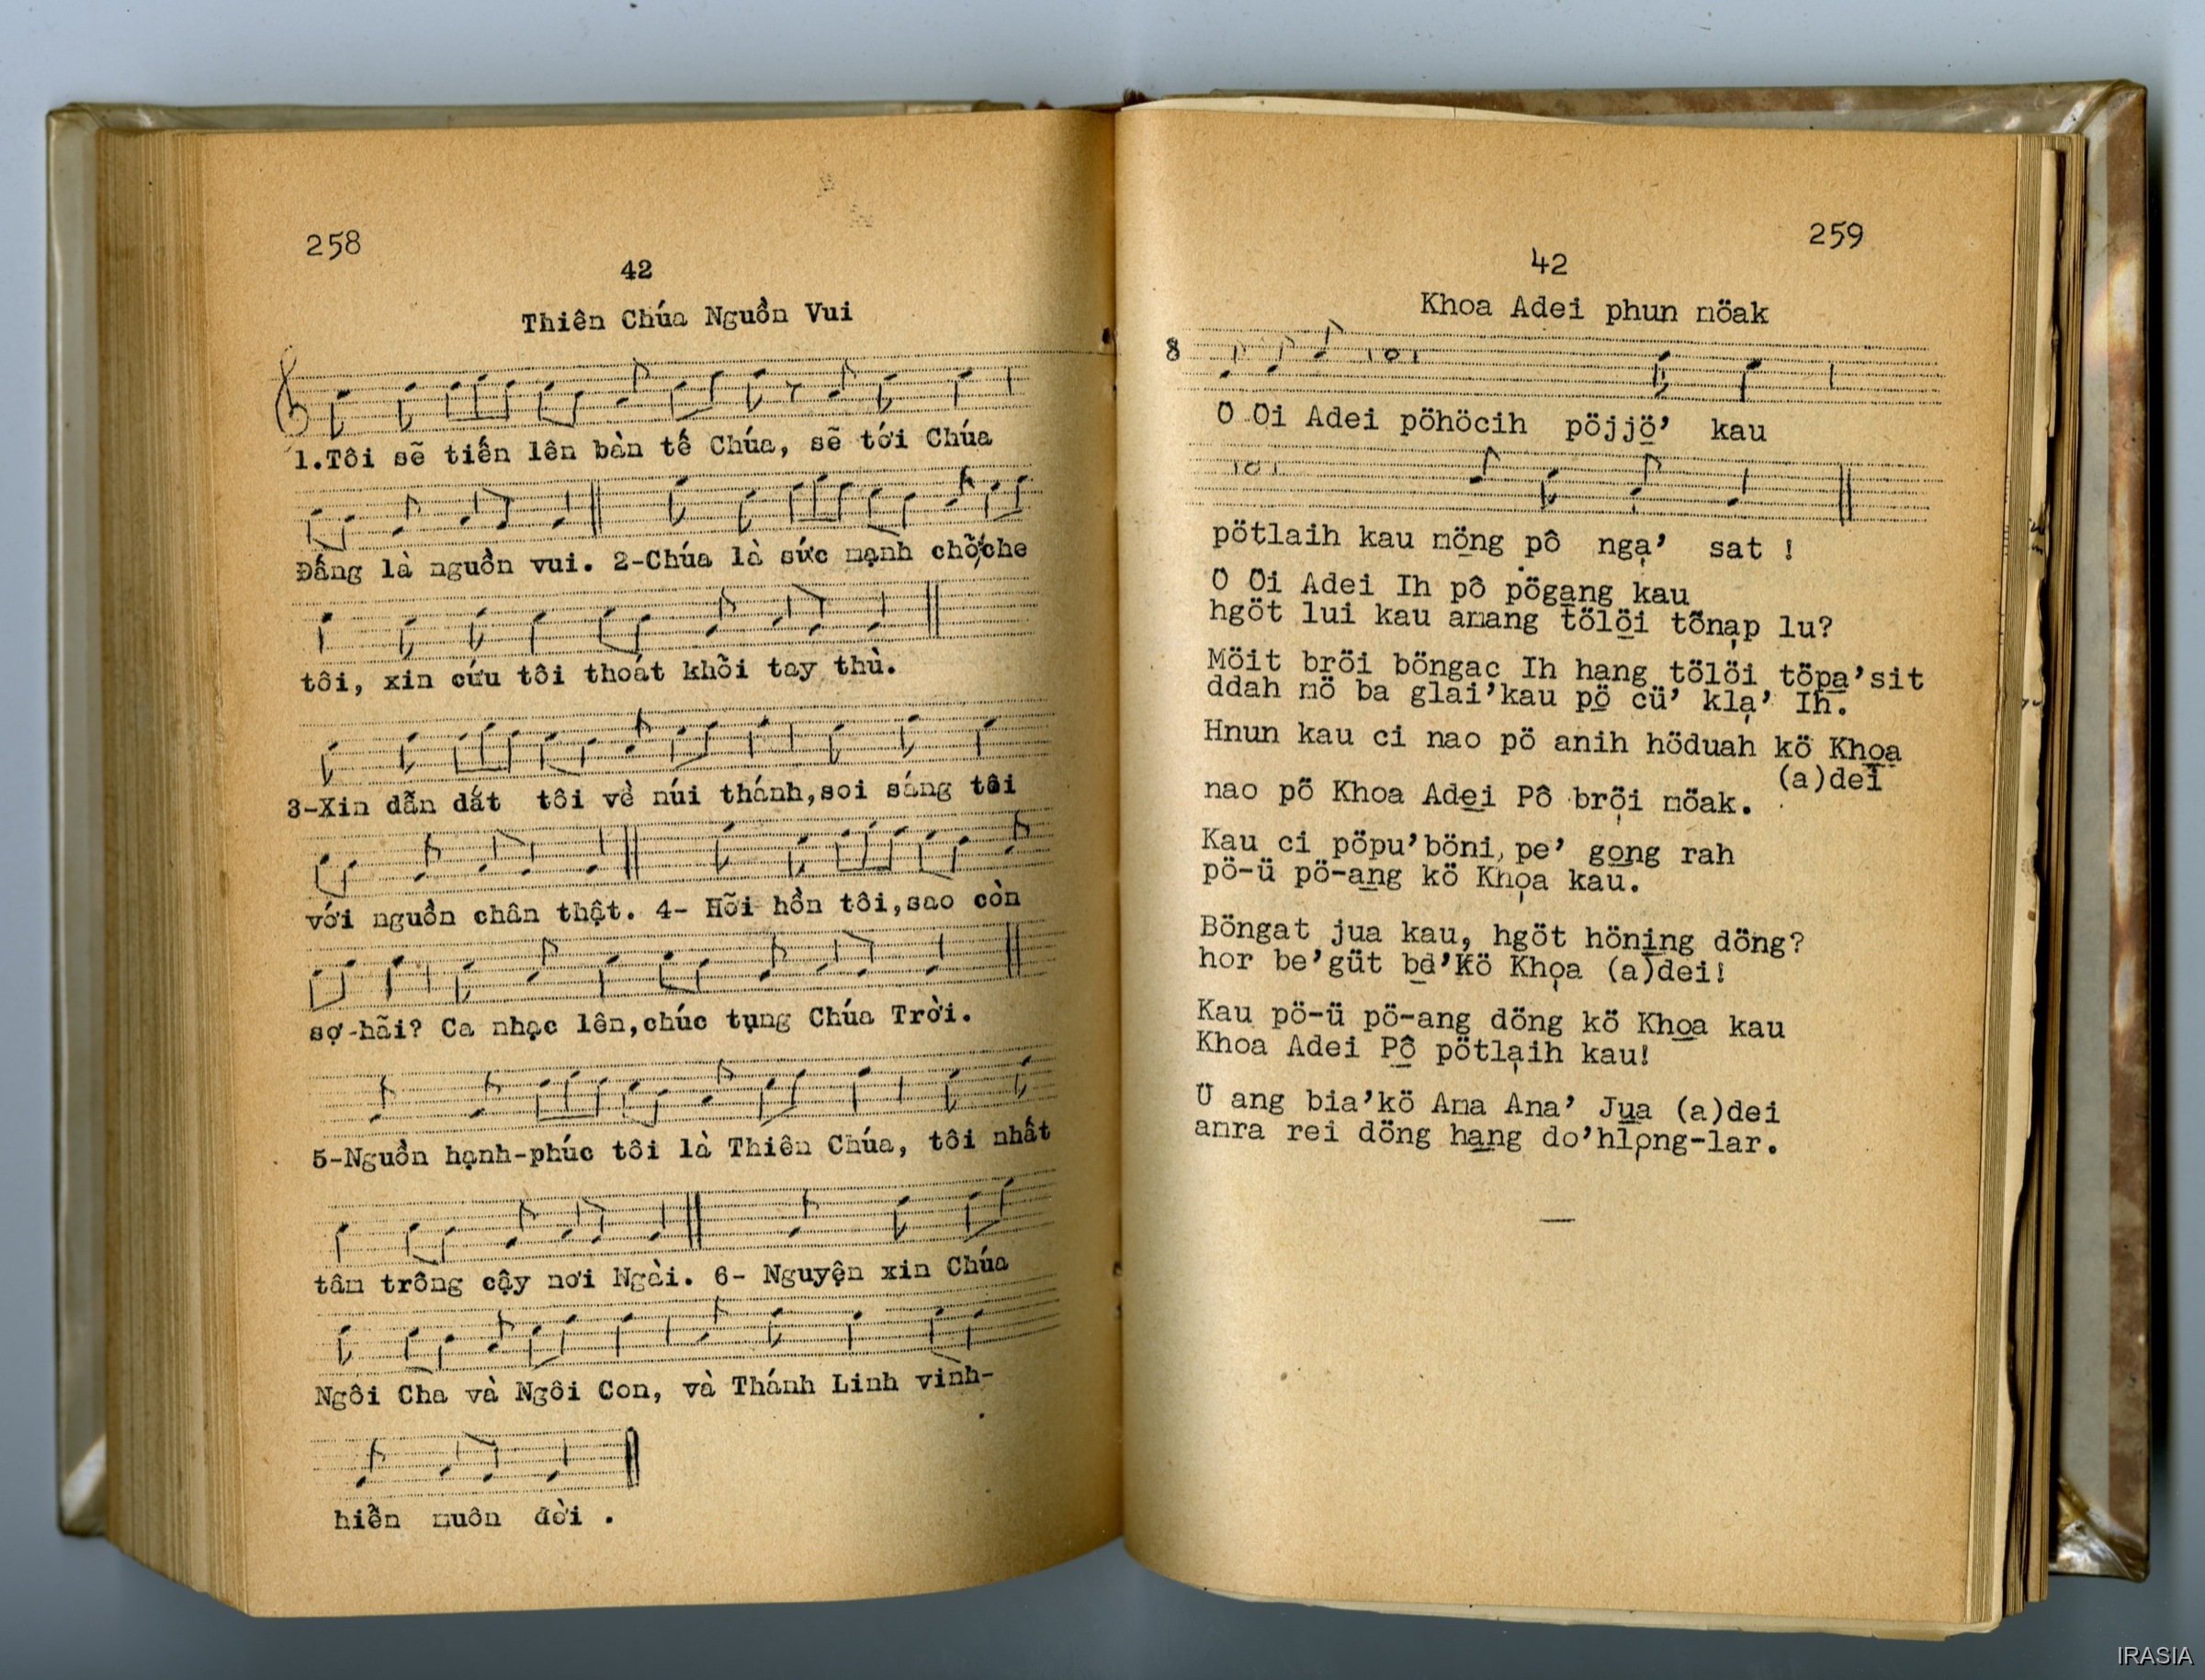 258
42
Thiên Chúa Nguồn Vui
1.Tôi sẽ tiến lên bàn tế Chúa, sẽ tới Chúa
Đấng là nguồn vui. 2-Chúa là sức mạnh chở che
tôi, xin cứu tôi thoát khỏi tay thù.
3-Xin dẫn dắt tôi về núi thánh,soi sáng tôi
với nguồn chân thật. 4- Hỡi hồn tôi,sao còn
sợ-hãi? Ca nhạc lên,chúc tụng Chúa Trời.
5-Nguồn hạnh-phúc tôi là Thiên Chúa, tôi nhất
tâm trông cậy nơi Ngài. 6- Nguyện xin Chúa
Ngôi Cha và Ngôi Con, và Thánh Linh vinh-
hiển muôn đời .
259
42
Khoa Adei phun möak
8
Ơ Ơi Adei pöhöcih pöjjö̱’ kau
pötlaih kau mö̱ng pô ngạ’ sat !
Ơ Ơi Adei Ih pô pöga̱ng kau
hgöt lui kau amang tölö̱i tönạp lu?
Möit bröi böngac Ih hang tölöi töpa̱’sit
ddah mö ba glai’kau pö̱ cü’ klạ’ Ih.
Hnun kau ci nao pö anih höduah kö Kho̱ạ
(a)dei
nao pö Khoa Ade̱i Pô brö̩i möak.
Kau ci pöpu’böni, pe’ go̱ng rah
pö-ü pö-a̱ng kö Khọa kau.
Böngat jua kau, hgöt höni̱ng döng?
hor be’güt bơ̱’kö Khọa (a)dei!
Kau pö-ü pö-ang döng kö Kho̱a kau
Khoa Adei Pô̱ pötlạih kau!
Ü ang bia’kö Ama Ana’ Ju̱a (a)dei
amra rei döng ha̱ng do’hlọng-lar.
IRASIA